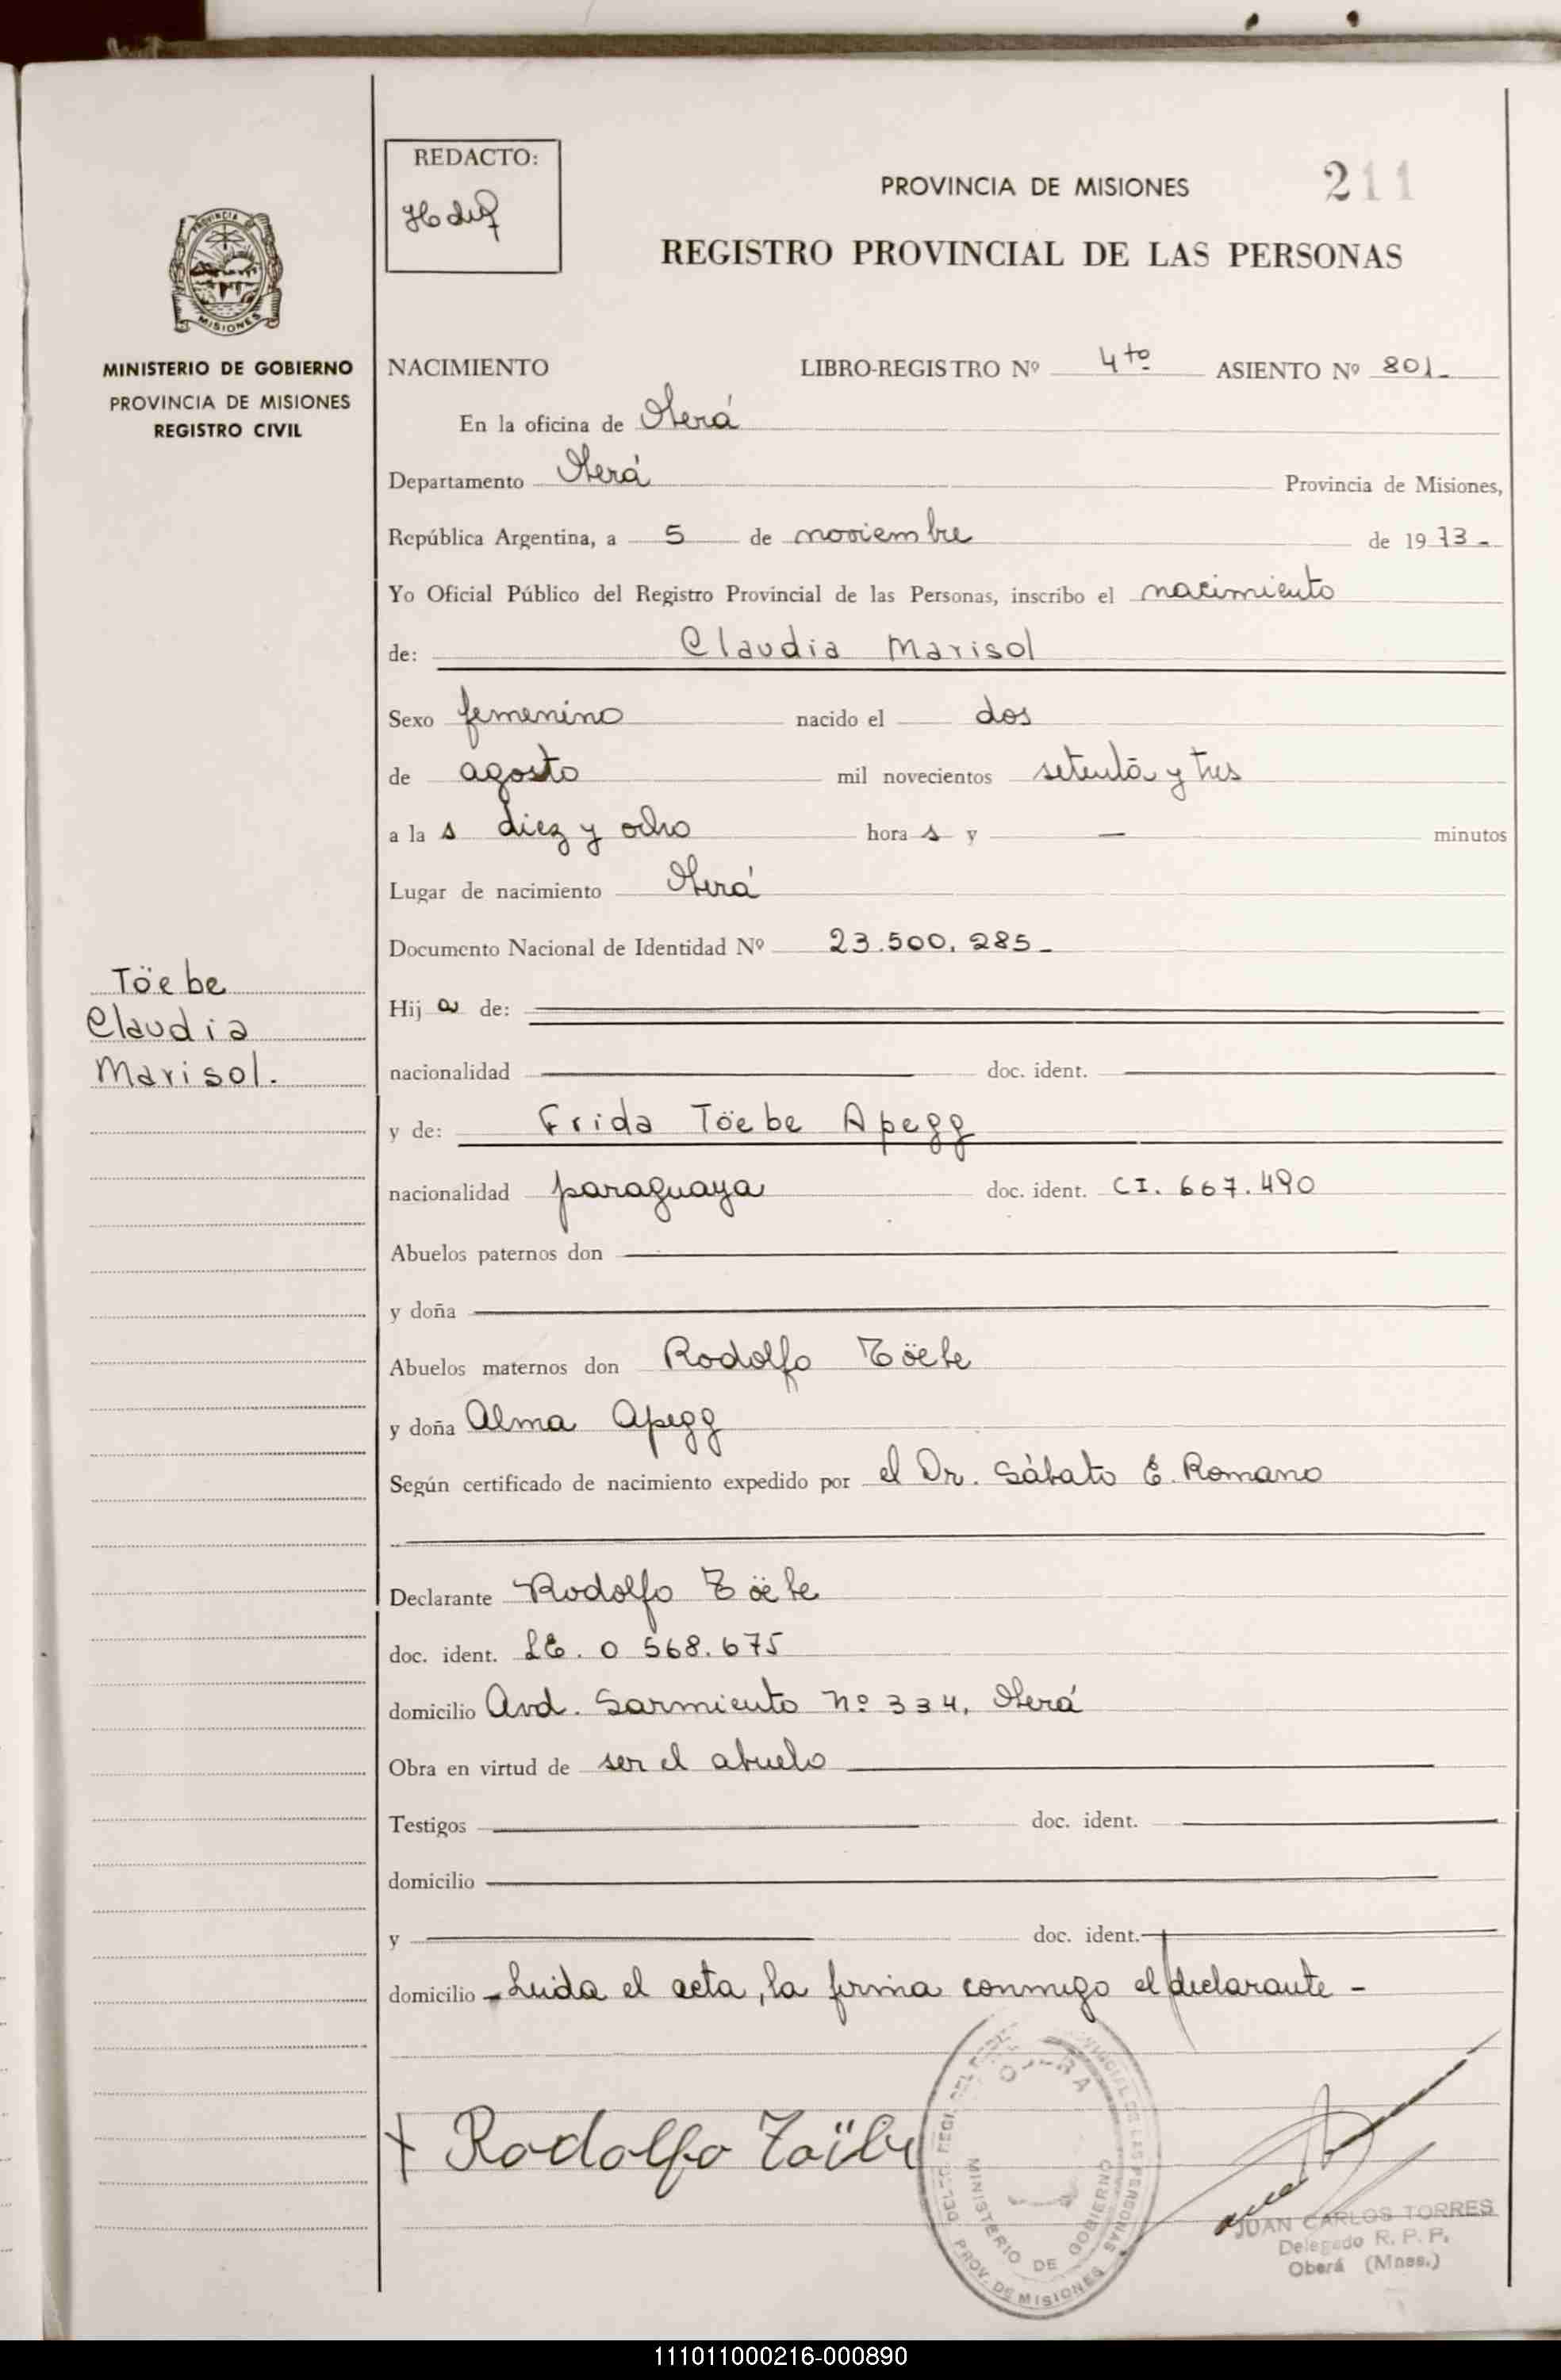 REDACTO:
PROVINCIA DE MISIONES
211
REGISTRO PROVINCIAL DE LAS PERSONAS
PROVINCIA
MISIONES
MINISTERIO DE GOBIERNO
PROVINCIA DE MISIONES
REGISTRO CIVIL
NACIMIENTO LIBRO-REGISTRO Nº 4to ASIENTO Nº 801-
En la oficina de Oberá
Departamento Oberá Provincia de Misiones,
República Argentina, a 5 de noviembre de 1973-
Yo Oficial Público del Registro Provincial de las Personas, inscribo el nacimiento
de: Claudia Marisol
Sexo femenino nacido el dos
de agosto mil novecientos setenta y tres
a la s diez y ocho hora s y — minutos
Lugar de nacimiento Oberá
Documento Nacional de Identidad Nº 23.500.285-
Töebe
Claudia
Marisol.
Hij a de:
nacionalidad doc. ident.
y de: Frida Töebe Apegg
nacionalidad paraguaya doc. ident. CI. 667.490
Abuelos paternos don
y doña
Abuelos maternos don Rodolfo Töebe
y doña Alma Apegg
Según certificado de nacimiento expedido por el Dr. Sábato E. Romano
Declarante Rodolfo Töebe
doc. ident. LE. 0 568.675
domicilio Avd. Sarmiento Nº 334, Oberá
Obra en virtud de ser el abuelo
Testigos doc. ident.
domicilio
y doc. ident.
domicilio - Leida el acta, la firma conmigo el declarante -
+ Rodolfo
MINISTERIO DE GOBIERNO
PROV. DE MISIONES
JUAN CARLOS TORRES
Delegado R. P. P.
Oberá (Mnes.)
111011000216-000890